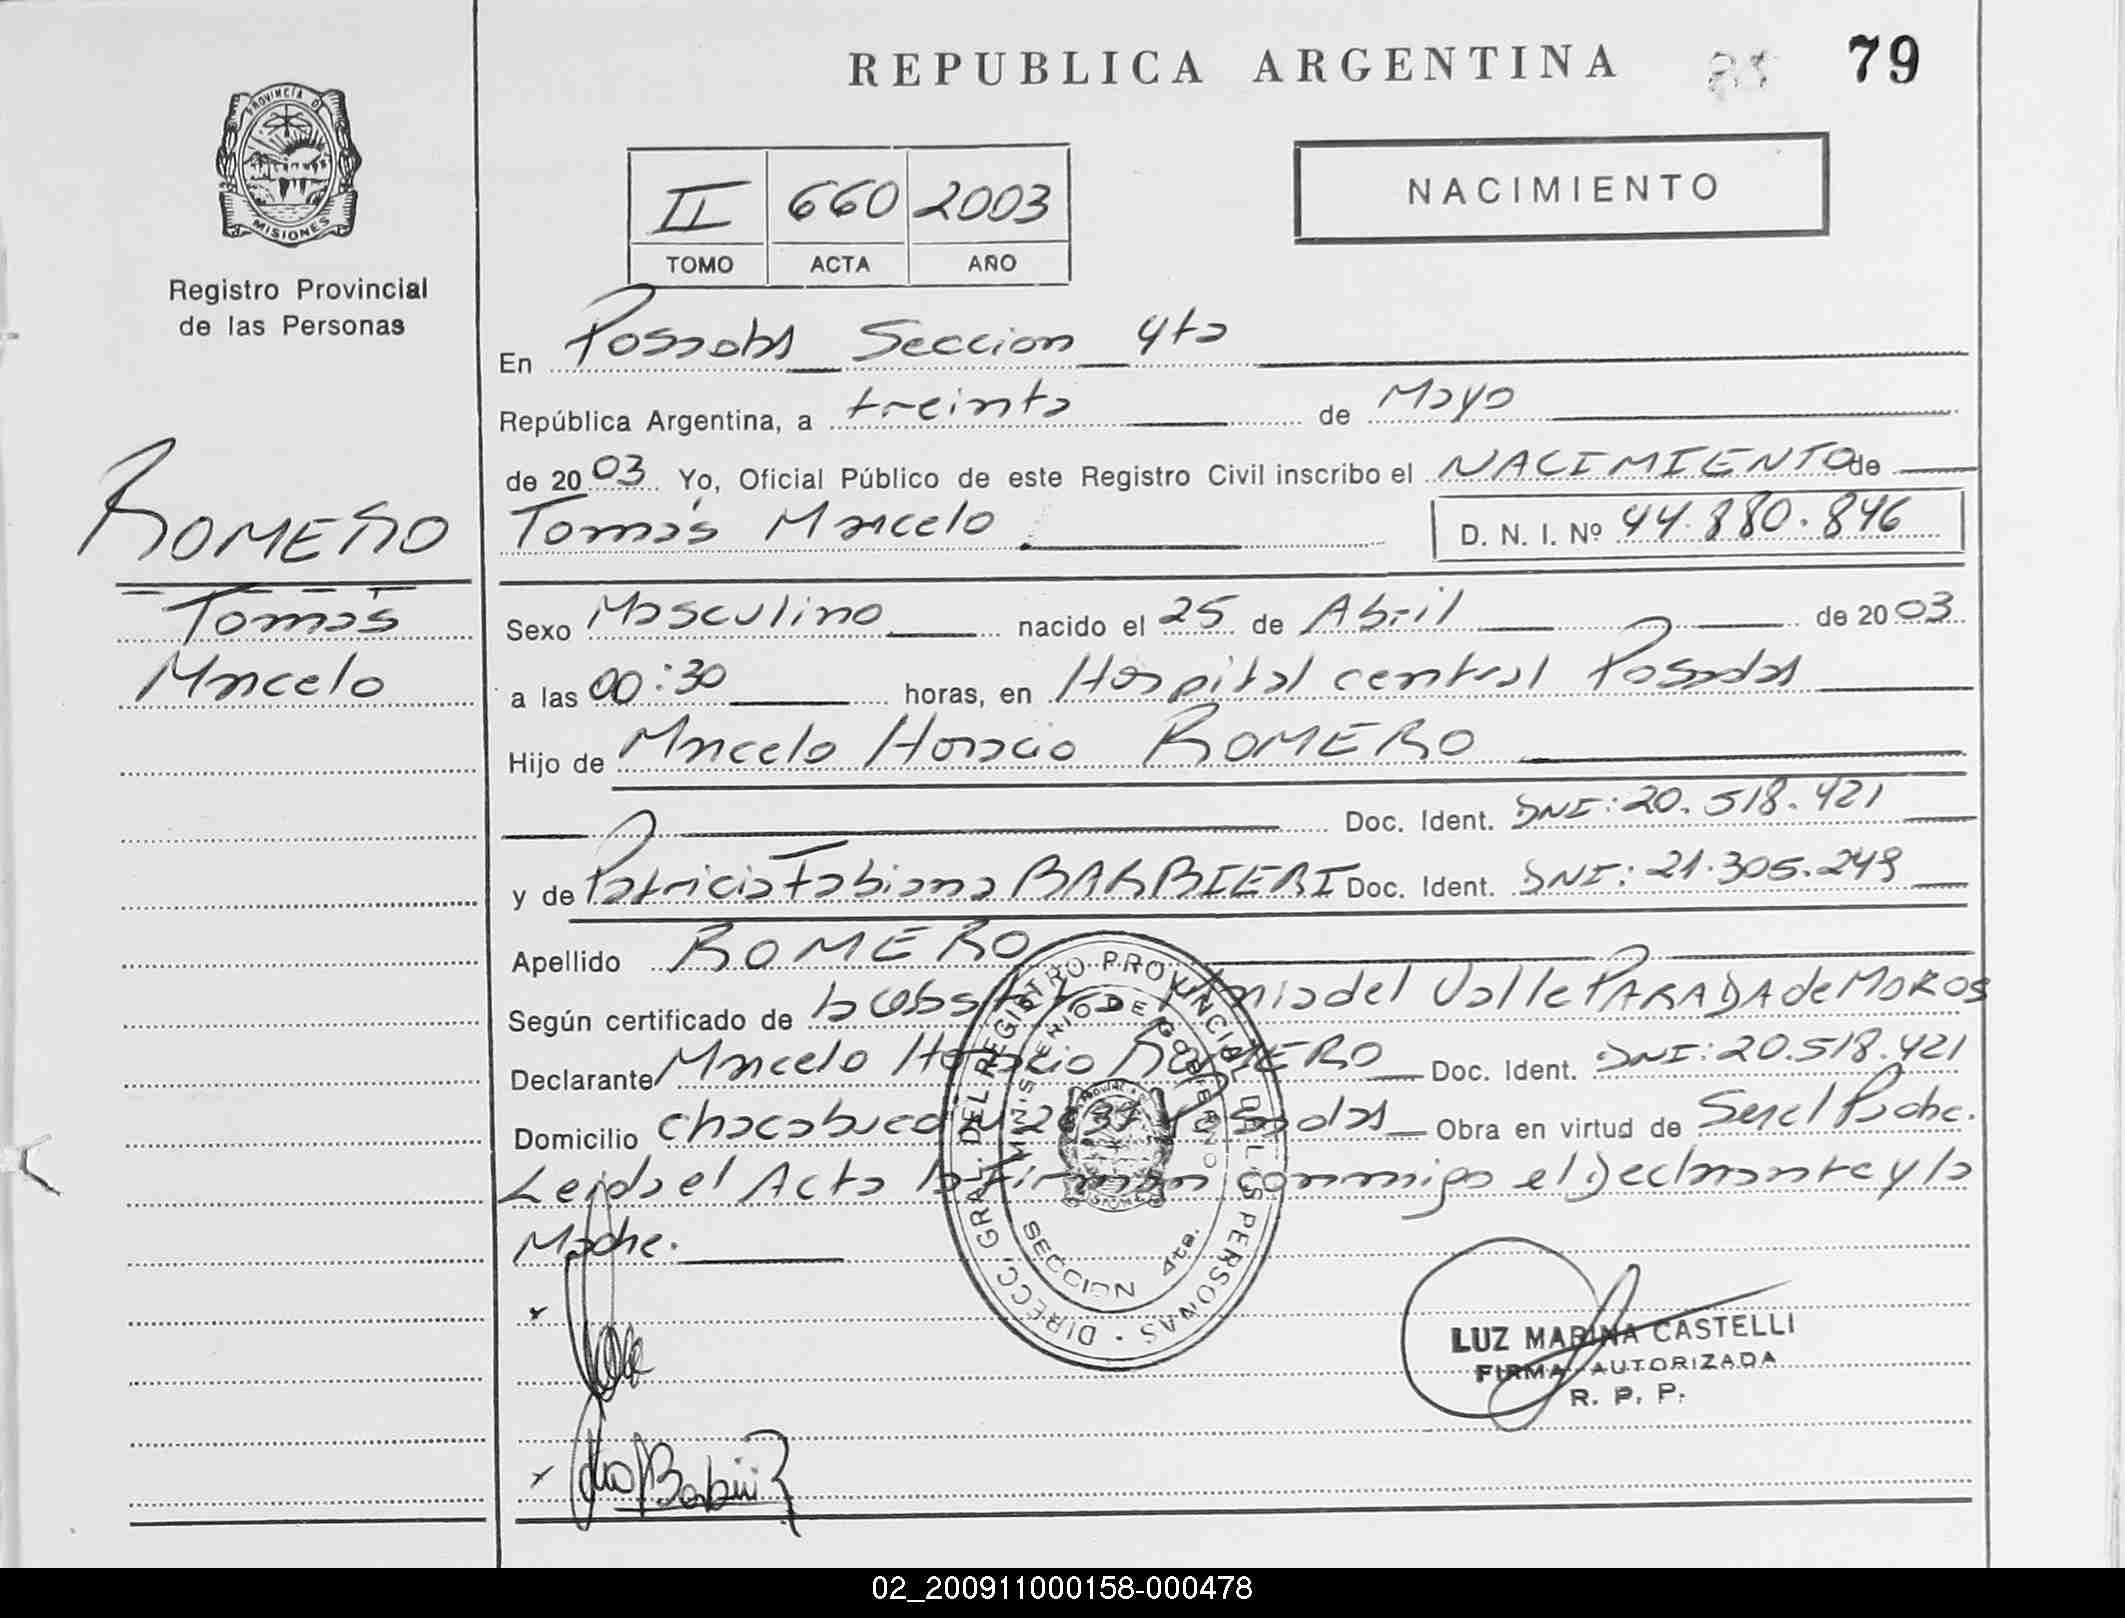 REPUBLICA ARGENTINA
79
PROVINCIA DE
MISIONES
Registro Provincial
de las Personas
II 660 2003
TOMO ACTA AÑO
NACIMIENTO
En Posadas Seccion 4ta
República Argentina, a treinta de Mayo
de 2003 Yo, Oficial Público de este Registro Civil inscribo el NACIMIENTO de
Tomás Marcelo D. N. I. Nº 44.880.846
ROMERO
Tomás
Marcelo
Sexo Masculino nacido el 25 de Abril de 2003
a las 00:30 horas, en Hospital central Posadas
Hijo de Marcelo Horacio ROMERO
Doc. Ident. DNI: 20.518.421
y de Patricia Fabiana BARBIERI Doc. Ident. DNI: 21.305.249
Apellido ROMERO
Según certificado de la del Valle PARADA de MOROS
Declarante Marcelo Horacio ROMERO Doc. Ident. DNI: 20.518.421
Domicilio chacabuco Posadas Obra en virtud de Ser el Padre.
Leida el Acta la Firman conmigo el Declarante y la
Madre.
DIRECC. GRAL. DEL REGISTRO PROVINCIAL DE LAS PERSONAS
MINISTERIO DE GOBIERNO
SECCION 4ta.
LUZ MARINA CASTELLI
FIRMA AUTORIZADA
R. P. P.
02_200911000158-000478